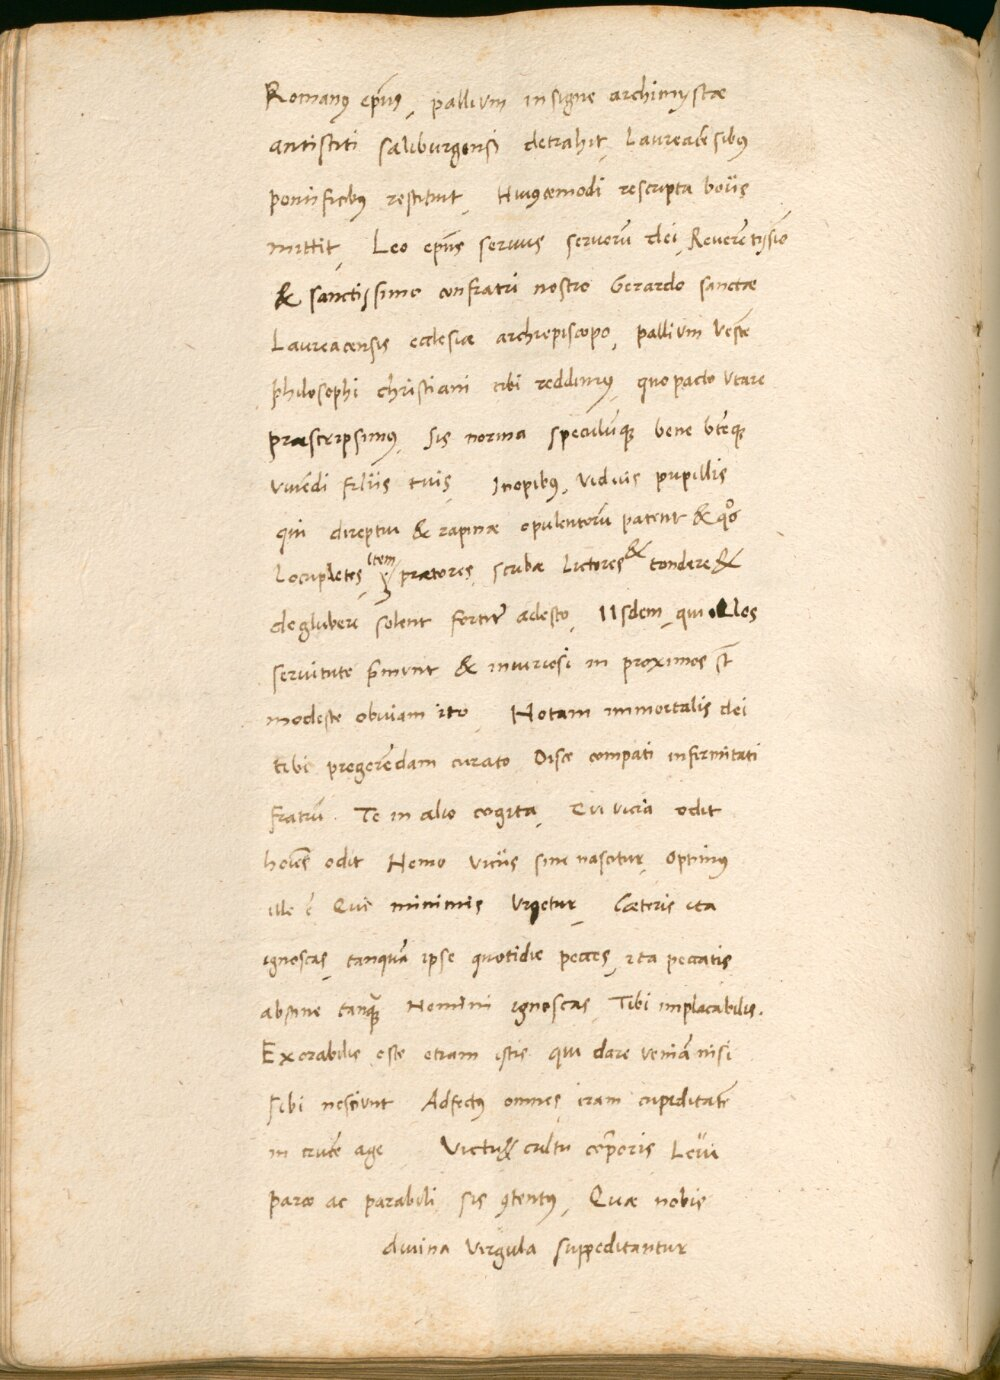 Romanꝰ ep̄us, pallivm insigne archimystæ
antistiti saliburgensi detrahit, Laureacēsibꝰ
pontificibꝰ restituit, Huiꝰcæmodi rescripta boiis
mittit, Leo ep̄us seruus seruorū dei, Reuerētissīo
& sanctissimo confratri nostro Gerardo sanctæ
Laureacensis ecclesiæ archiepiscopo, pallium vestē
philosophi christiani tibi reddimꝰ, quo pacto vtare
præscripsimꝰ, Sis norma speculūqꝫ bene btēqꝫ
viuēdi filiis tuis, Inopibꝰ, viduis pupillis
qui direptui & rapinæ opulentorū patent & qͦs
Locupletes, item prætores, scribæ Lictores & tondere &
deglubere solent fortit̄ adesto, IIsdem, qui illos
seruitute p̄munt & iniuriosi in proximos st̄
modeste obuiam ito, Notam immortalis dei
tibi progerēdam curato Disce compati infirmitati
fratrū. Te in alio cogita, Qui vicia odit
hoīes odit Nemo viciis sine nascitur, optimꝰ
ille ē Qui minimis vrgetur, Cæteris ita
ignoscas, tanquā ipse quotidie pecces, ita peccatis
abstine tanqꝫ̄ Nemini ignoscas, Tibi implacabilis.
Exorabilis este etiam istis qui dare veniā nisi
sibi nesciunt Adfectꝰ omnes, iram cupiditatē
in crucē age Victu & cultu corꝑoris Leui
parco ac parabili sis ꝯtentꝰ, Quæ nobis
diuina virgula suppeditantur